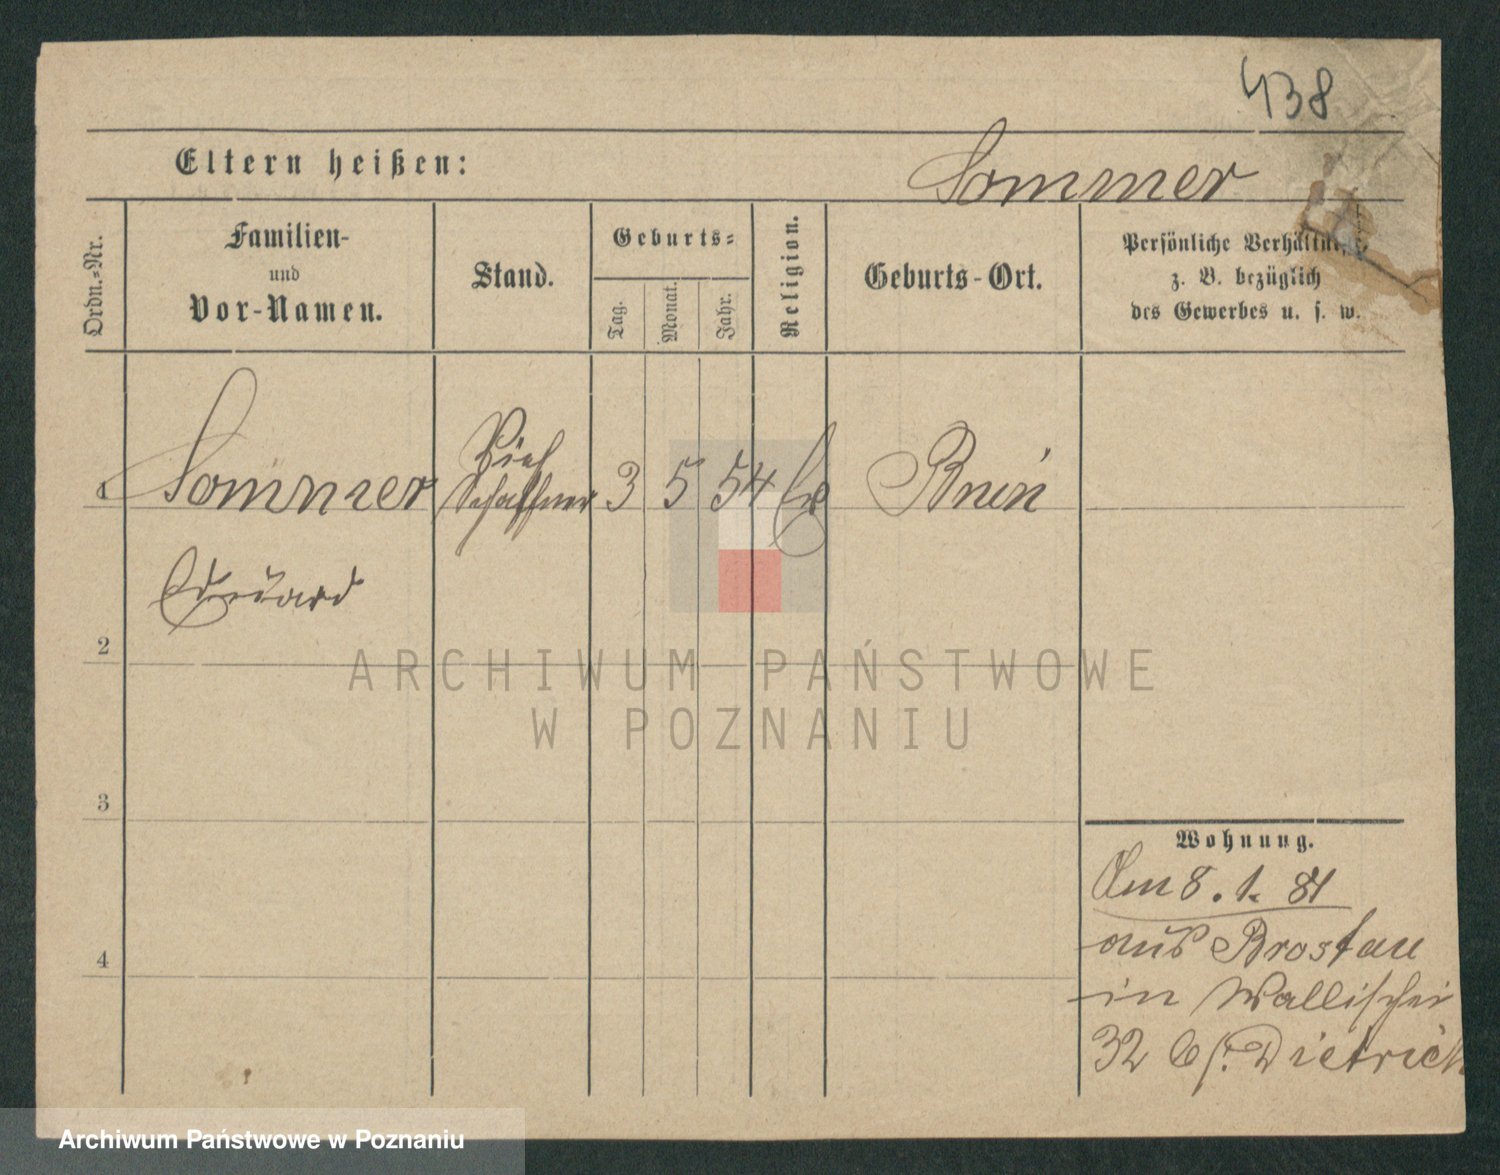 438
Eltern heißen:
Sommer
Ordn.-Nr.
Familien-
und
Vor-Namen.
Stand.
Geburts-
Tag.
Monat.
Jahr.
Religion.
Geburts-Ort.
Persönliche Verhältnisse,
z. B. bezüglich
des Gewerbes u. s. w.
1 Sommer
Vieh
Schaffner
3 5 54
Bnin
Eduard
2
ARCHIWUM PAŃSTWOWE
W POZNANIU
3
Wohnung.
Am 8. 1. 81
aus Brostau
in Wallischei
32 Dietrich
4
Archiwum Państwowe w Poznaniu